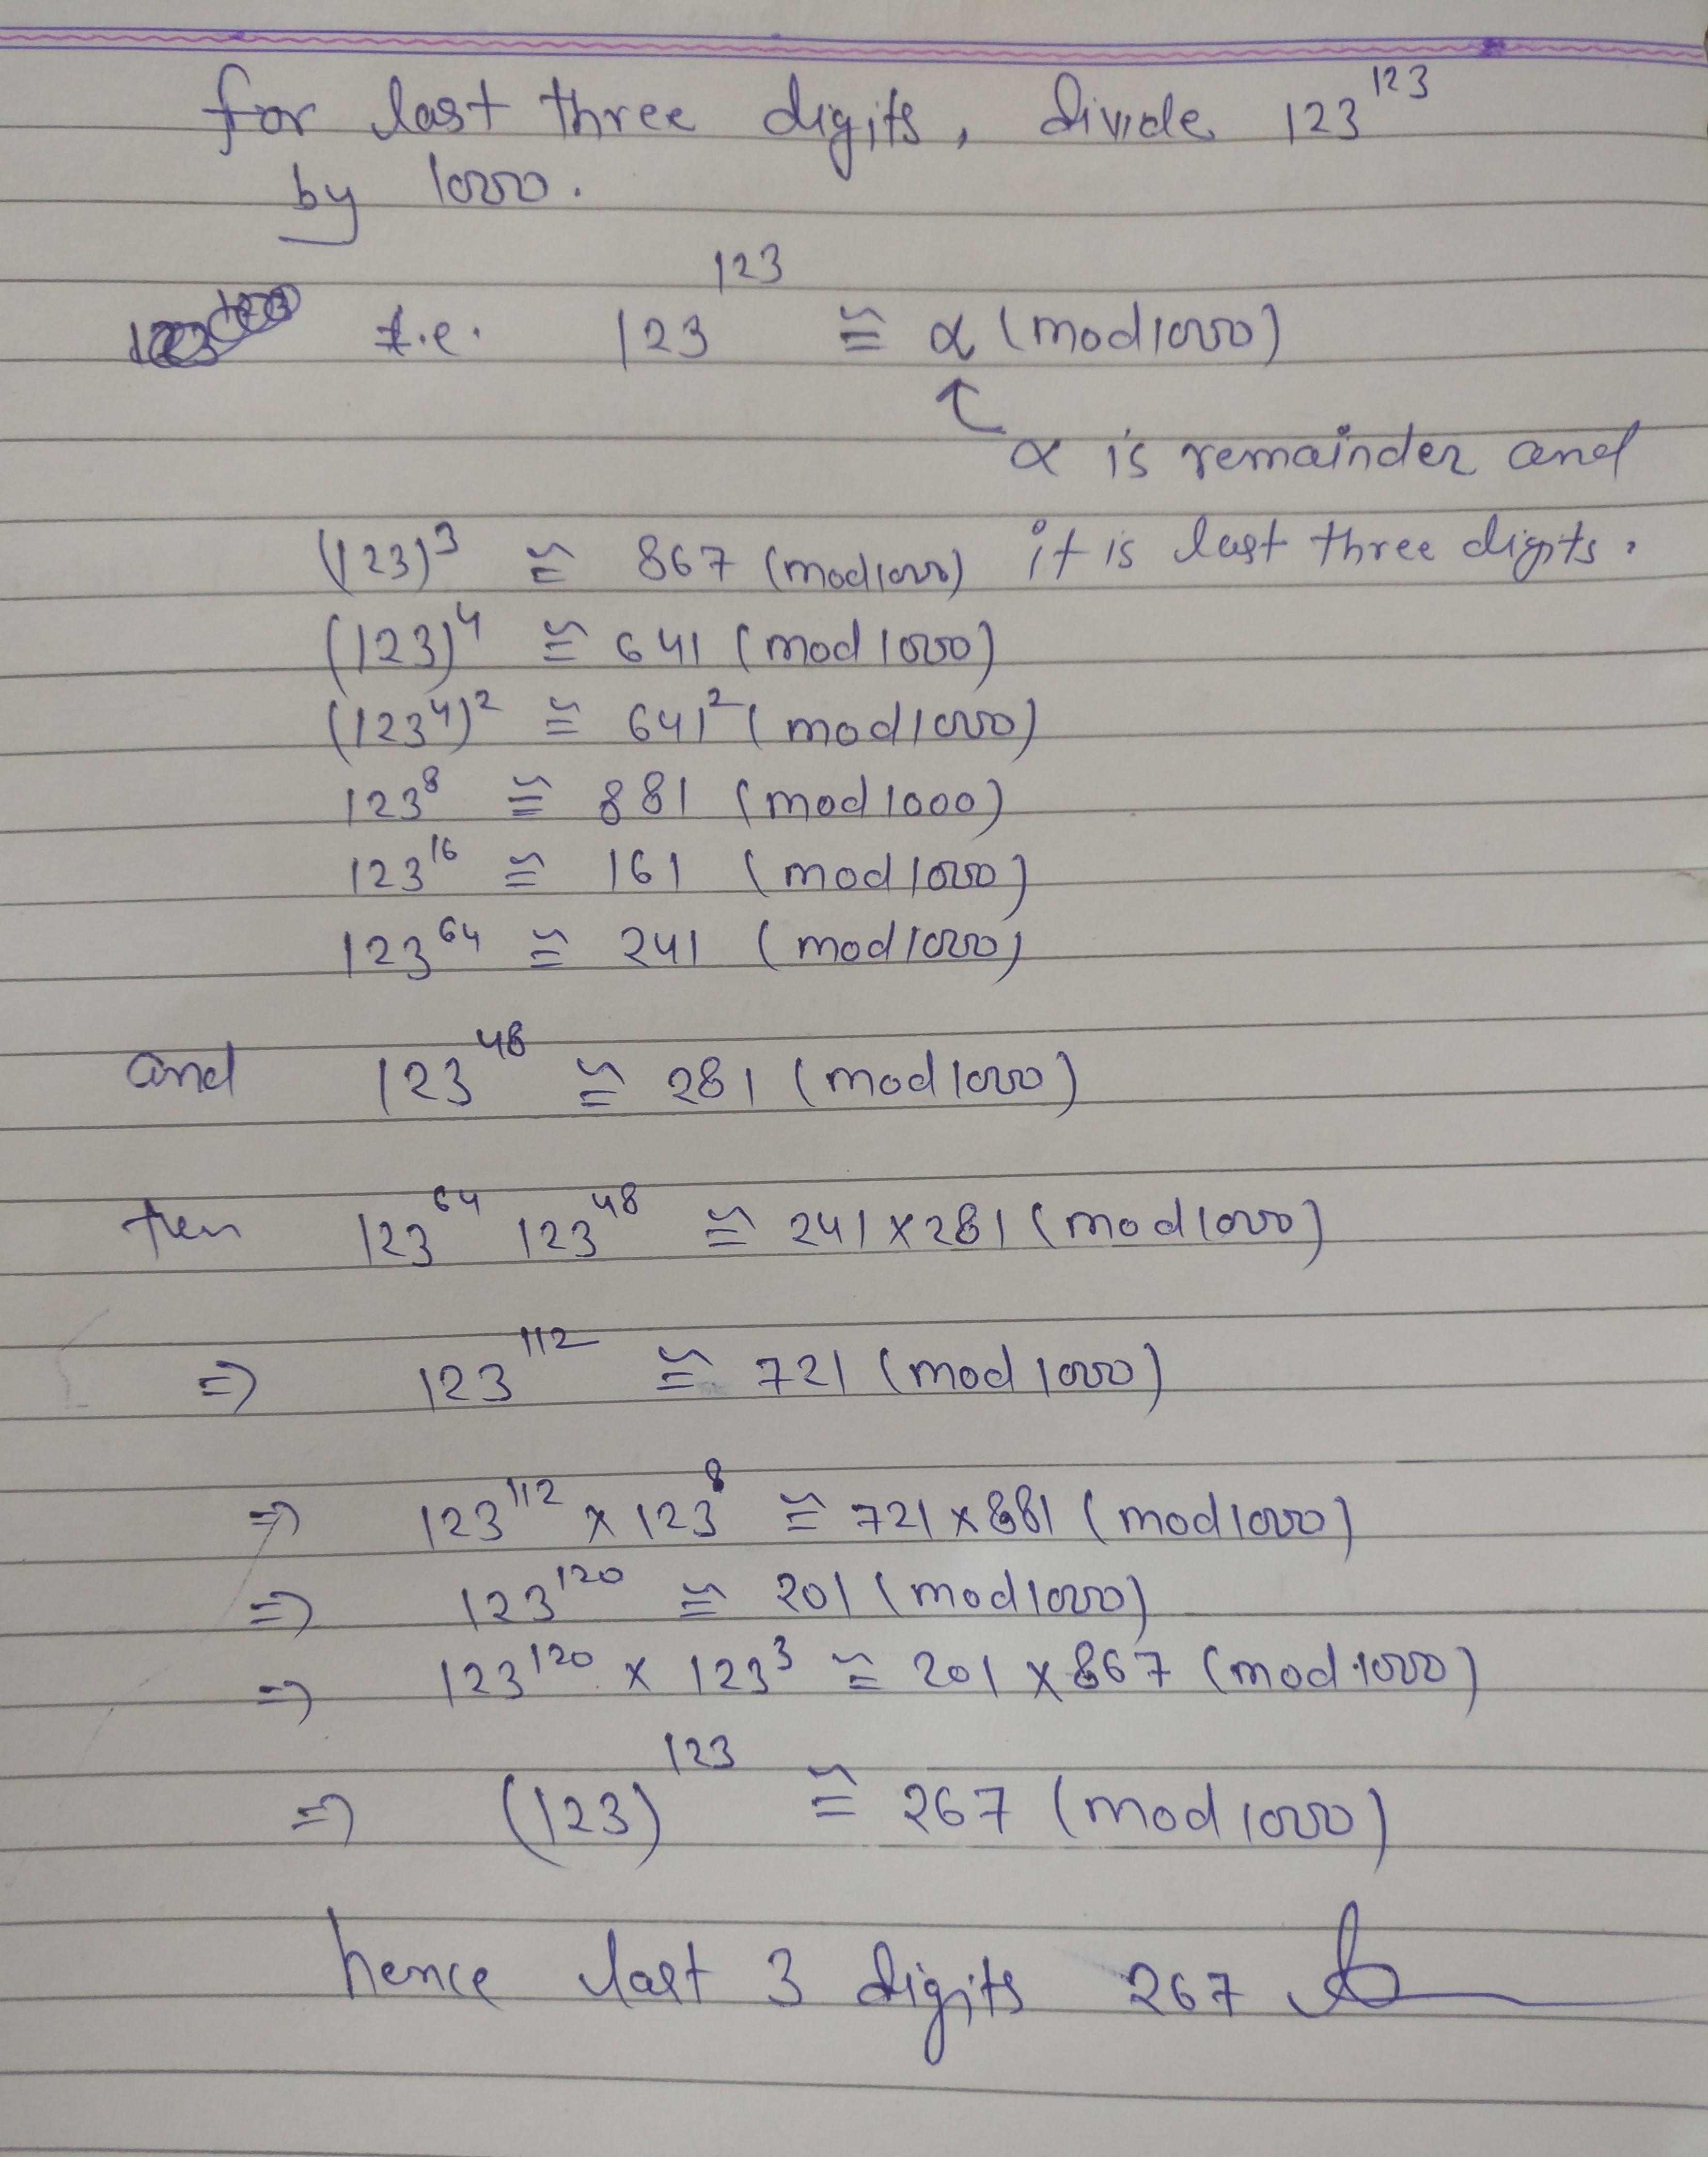 for last three digits, divide 123^123
by 1000.
i.e. 123^123 ≅ α (mod 1000)
↑
α is remainder and
(123)^3 ≅ 867 (mod 1000) it is last three digits.
(123)^4 ≅ 641 (mod 1000)
(123^4)^2 ≅ 641^2 (mod 1000)
123^8 ≅ 881 (mod 1000)
123^16 ≅ 161 (mod 1000)
123^64 ≅ 241 (mod 1000)
and 123^48 ≅ 281 (mod 1000)
then 123^64 123^48 ≅ 241 × 281 (mod 1000)
⇒ 123^112 ≅ 721 (mod 1000)
⇒ 123^112 × 123^8 ≅ 721 × 881 (mod 1000)
⇒ 123^120 ≅ 201 (mod 1000)
⇒ 123^120 × 123^3 ≅ 201 × 867 (mod 1000)
⇒ (123)^123 ≅ 267 (mod 1000)
hence last 3 digits 267